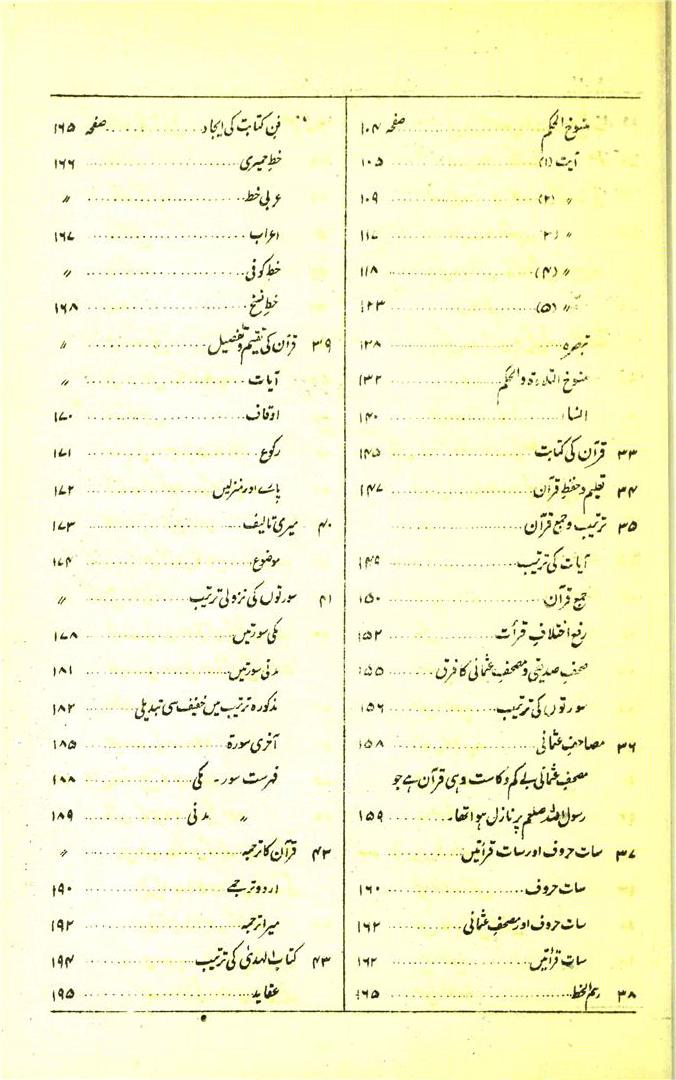 منسوخ الحکم صفحہ ۱۰۴
آیت (۱) ۱۰۵
〃 (۲) ۱۰۹
〃 (۳) ۱۱۷
〃 (۴) ۱۱۸
〃 (۵) ۱۲۳
تبصرہ ۱۲۸
منسوخ التلاوۃ والحکم ۱۳۲
انساء ۱۴۰
۳۳ قرآن کی کتابت ۱۴۵
۳۴ تعلیم و حفظِ قرآن ۱۴۷
۳۵ ترتیب و جمع قرآن
آیات کی ترتیب ۱۴۹
جمع قرآن ۱۵۰
رفع اختلافِ قرأت ۱۵۲
صحفِ صدیقی و مصحفِ عثمانی کا فرق ۱۵۵
سورتوں کی ترتیب ۱۵۶
۳۶ مصاحفِ عثمانی ۱۵۸
مصحفِ عثمانی بے کم و کاست وہی قرآن ہے جو
رسول اللہ صلعم پر نازل ہوا تھا۔ ۱۵۹
۳۷ سات حروف اور سات قرأتیں
سات حروف ۱۶۰
سات حروف اور مصحفِ عثمانی ۱۶۲
سات قرأتیں ۱۶۲
۳۸ رسم الخط ۱۶۵
فنِ کتابت کی ایجاد صفحہ ۱۶۵
خطِ حمیری ۱۶۶
عربی خط 〃
اعراب ۱۶۷
خطِ کوفی 〃
خطِ نسخ ۱۶۸
۳۹ قرآن کی تقسیم و تفصیل 〃
آیات 〃
اوقاف ۱۷۰
رکوع ۱۷۱
پارے اور منزلیں ۱۷۲
۴۰ میری تالیف ۱۷۳
موضوع ۱۷۴
۴۱ سورتوں کی نزولی ترتیب 〃
مکی سورتیں ۱۷۸
مدنی سورتیں ۱۸۱
مذکورہ ترتیب میں خفیف سی تبدیلی ۱۸۲
آخری سورۃ ۱۸۵
فہرست سور۔ مکی ۱۸۸
〃 مدنی ۱۸۹
۴۲ قرآن کا ترجمہ 〃
اردو ترجمے ۱۹۰
میرا ترجمہ ۱۹۲
۴۳ کتاب الہدیٰ کی ترتیب ۱۹۴
عقاید ۱۹۵